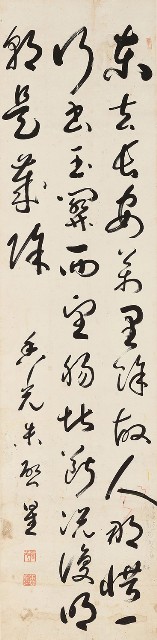 東去長安萬里餘故人那惜一
行書玉關西望腸堪斷況復明
朝是歲除
光